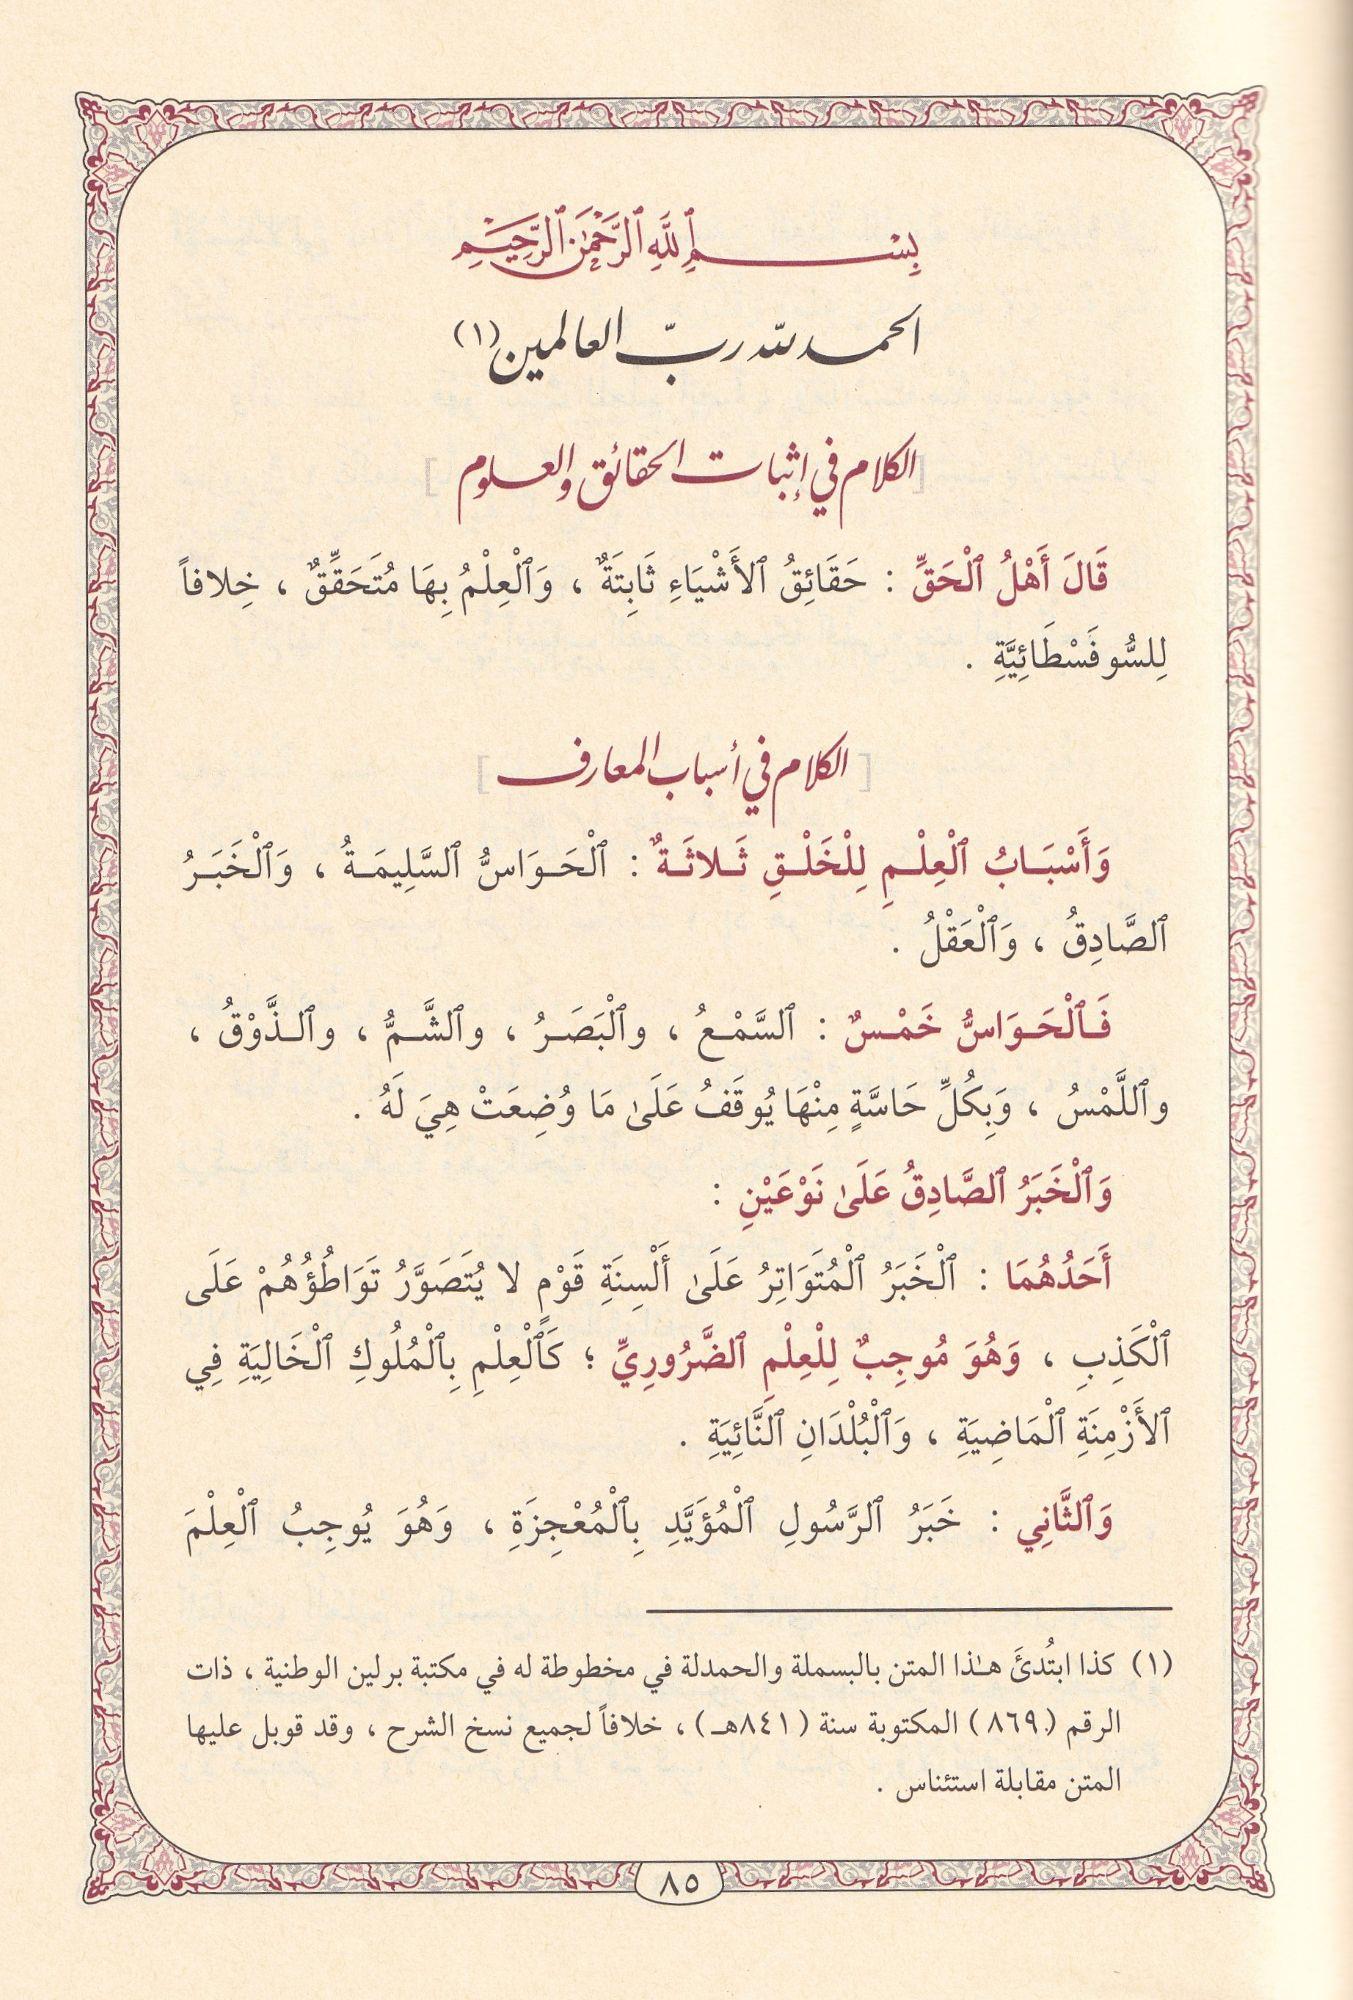 بِسْمِ ٱللَّهِ ٱلرَّحْمَٰنِ ٱلرَّحِيمِ
الحمد لله ربّ العالمين (١)
[الكلام في إثبات الحقائق والعلوم]
قَالَ أَهْلُ ٱلْحَقِّ : حَقَائِقُ ٱلأَشْيَاءِ ثَابِتَةٌ ، وَٱلْعِلْمُ بِهَا مُتَحَقِّقٌ ، خِلافاً
لِلسُّوفَسْطَائِيَّةِ .
[الكلام في أسباب المعارف]
وَأَسْبَابُ ٱلْعِلْمِ لِلْخَلْقِ ثَلاثَةٌ : ٱلْحَوَاسُّ ٱلسَّلِيمَةُ ، وَٱلْخَبَرُ
ٱلصَّادِقُ ، وَٱلْعَقْلُ .
فَٱلْحَوَاسُّ خَمْسٌ : ٱلسَّمْعُ ، وٱلْبَصَرُ ، وٱلشَّمُّ ، وٱلذَّوْقُ ،
وٱللَّمْسُ ، وَبِكُلِّ حَاسَّةٍ مِنْهَا يُوقَفُ عَلَىٰ مَا وُضِعَتْ هِيَ لَهُ .
وَٱلْخَبَرُ ٱلصَّادِقُ عَلَىٰ نَوْعَيْنِ :
أَحَدُهُمَا : ٱلْخَبَرُ ٱلْمُتَوَاتِرُ عَلَىٰ أَلْسِنَةِ قَوْمٍ لا يُتَصَوَّرُ تَوَاطُؤُهُمْ عَلَى
ٱلْكَذِبِ ، وَهُوَ مُوجِبٌ لِلْعِلْمِ ٱلضَّرُورِيِّ ؛ كَٱلْعِلْمِ بِٱلْمُلُوكِ ٱلْخَالِيَةِ فِي
ٱلأَزْمِنَةِ ٱلْمَاضِيَةِ ، وَٱلْبُلْدَانِ ٱلنَّائِيَةِ .
وَٱلثَّانِي : خَبَرُ ٱلرَّسُولِ ٱلْمُؤَيَّدِ بِٱلْمُعْجِزَةِ ، وَهُوَ يُوجِبُ ٱلْعِلْمَ
(١) كذا ابتُدئَ هـٰذا المتن بالبسملة والحمدلة في مخطوطة له في مكتبة برلين الوطنية ، ذات
الرقم (٨٦٩٠) المكتوبة سنة (٨٤١هـ) ، خلافاً لجميع نسخ الشرح ، وقد قوبل عليها
المتن مقابلة استئناس .
٨٥